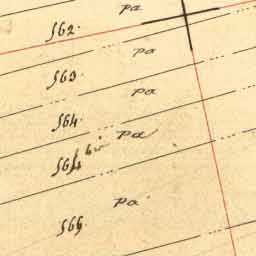 pa
562.
pa
563.
pa
564.
pa
564 bis
pa
565.